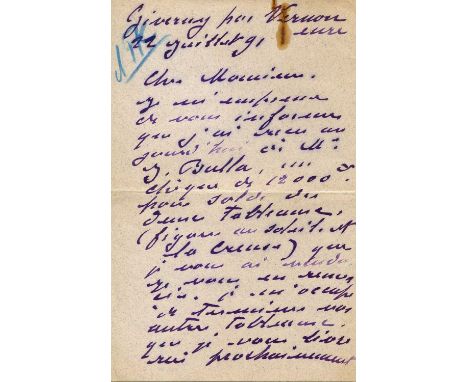 Giverny par Vernon
eure
22 juillet 91
Cher Monsieur.
je m'empresse
de vous informer
que j'ai recu au
jourd'hui de Mr
J. Bulla, un
chèque de 12000 f.
pour solde des
deux tableaux,
(figure au soleil. et
la Creuse) que
je vous ai vendu
je vous en remer
cie. je m'occupe
de terminer vos
autres tableaux.
que je vous livre
rai prochainement